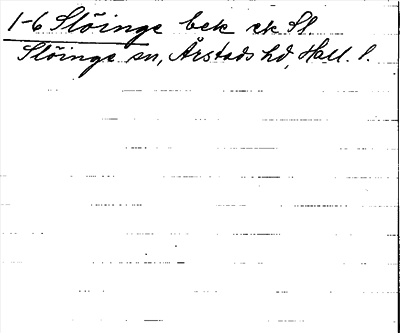 1-6 Slöinge bek ek Sl.
Slöinge sn, Årstads hd, Hall. l.